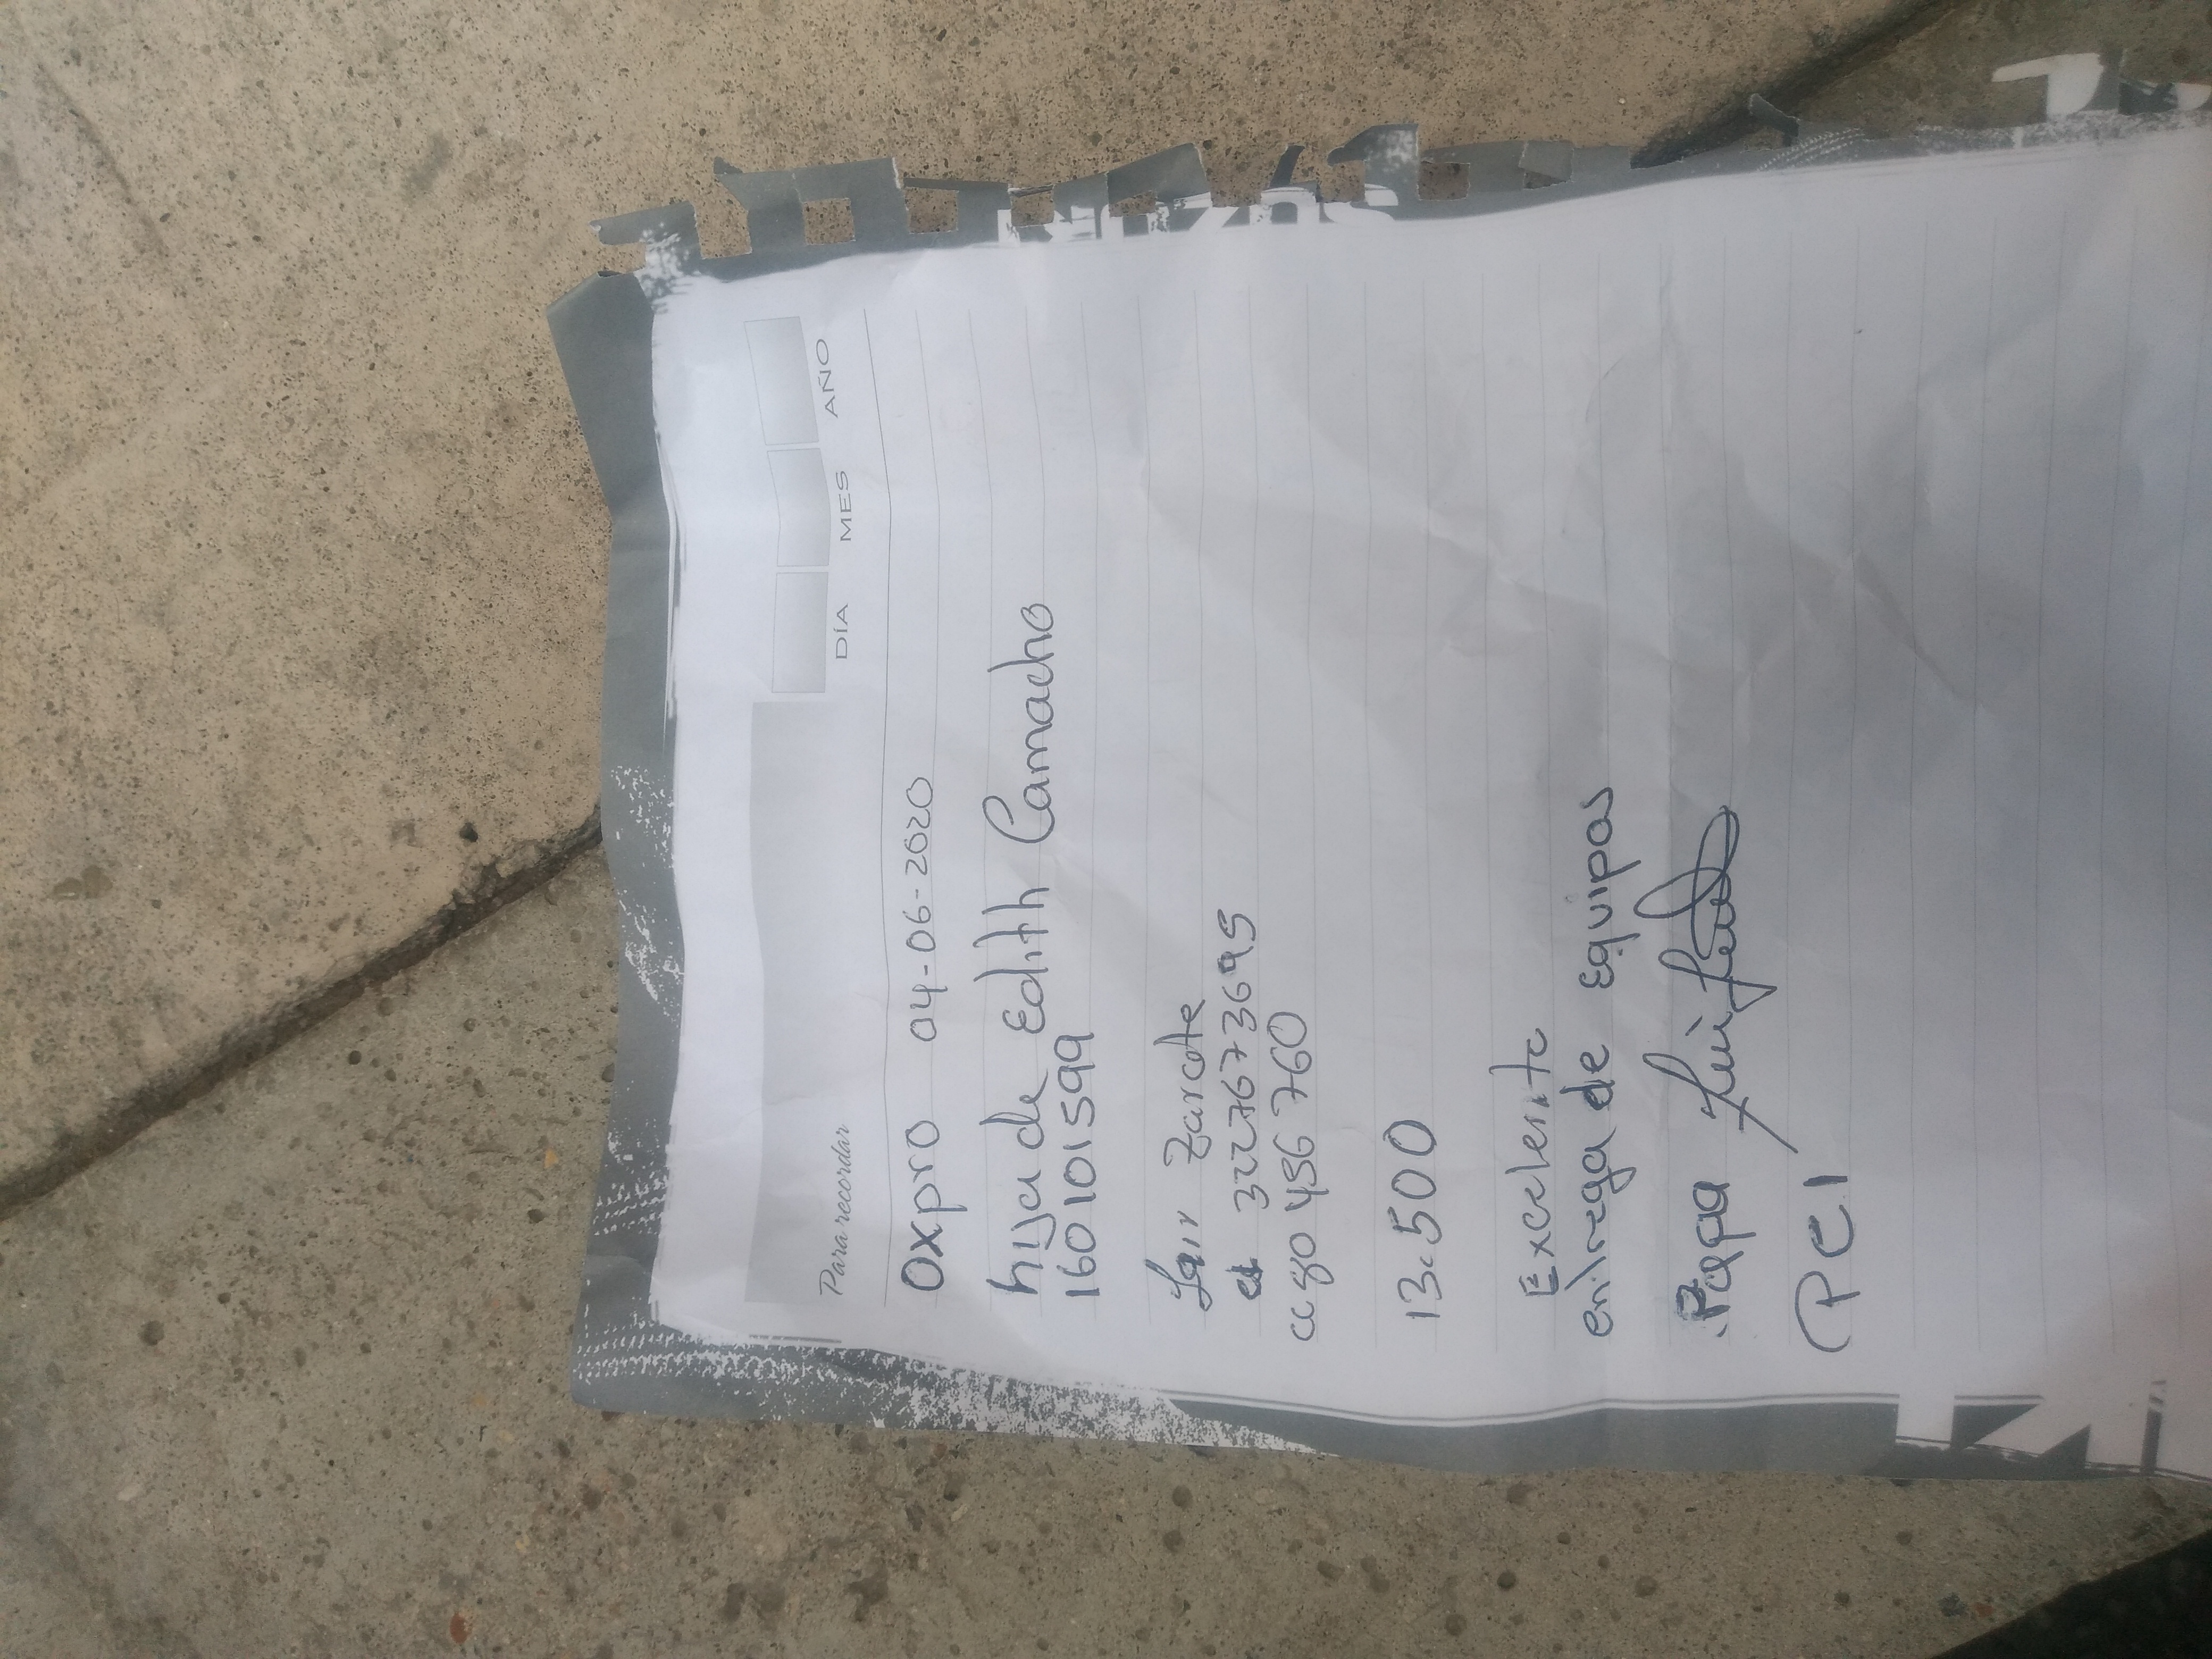 DÍA MES AÑO
Para recordar
Oxpro 04-06-2020
hija de Edith Camacho
160101599
Zarate
3227673695
cc 80 436 760
13.500
Excelente
entrega de Equipos
Papa Luis
(PCI